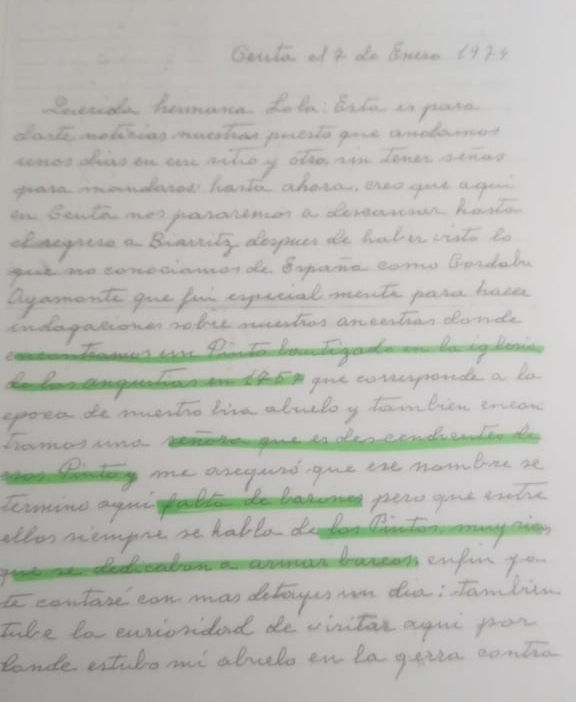 Ceuta el 7 de Enero 1974
Querida hermana Lola: Esta es para
darte noticias nuestras puesto que andamos
unos dias en un sitio y otro, sin tener señas
para mandaros hasta ahora, creo que aqui
en Ceuta nos pararemos a descansar hasta
el regreso a Biarritz despues de haber visto lo
que no conociamos de España como Cordoba
Ayamonte que fui especial mente para hacer
indagaciones sobre nuestros ancestros donde
encontramos un Pinto bautizado en la iglesia
de las angustias en 1757 que corresponde a la
epoca de nuestro bisa abuelo y tambien encon
tramos una señora que es descendientes de
esos Pinto y me aseguró que ese nombre se
termino aqui falta de barones pero que entre
ellos siempre se habla de los Pintos, muy ricos
que se dedicaban a armar barcos, enfin ya
te contaré con mas detayes un dia; tambien
tube la curiosidad de visitar aqui por
donde estubo mi abuelo en la gerra contra